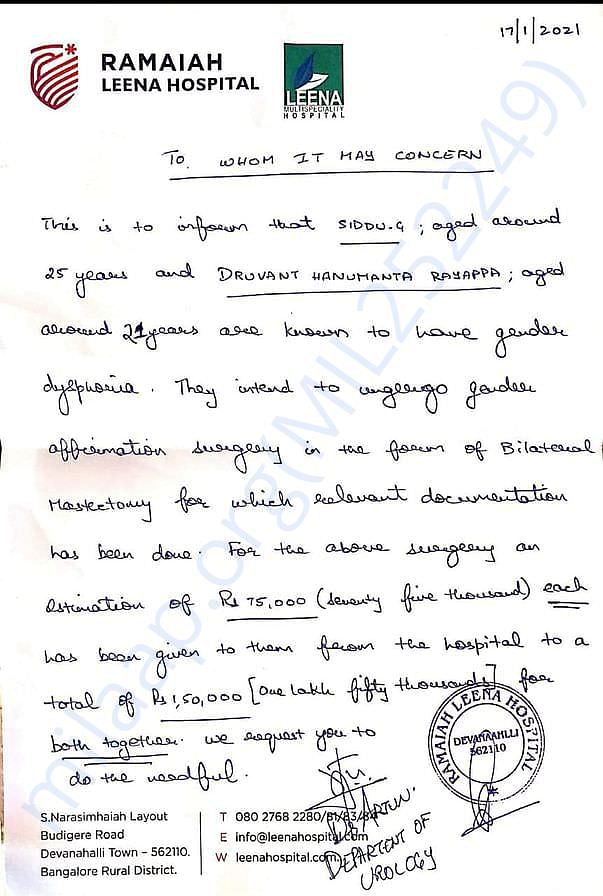 17/1/2021
RAMAIAH
LEENA HOSPITAL
LEENA
MULTISPECIALITY
HOSPITAL
TO WHOM IT MAY CONCERN
This is to inform that SIDDU.G ; aged around
25 years and DRUVANT HANUMANTA RAYAPPA ; aged
around 21 years are known to have gender
dysphoria. They intend to ungergo gender
affirmation surgery in the form of Bilateral
Mastectomy for which relevant documentation
has been done. For the above surgery an
estimation of Rs 75,000 (seventy five thousand) each
has been given to them from the hospital to a
total of Rs 1,50,000 [One lakh fifty thousands] for
both together. We request you to
do the needful.
RAMAIAH LEENA HOSPITAL
DEVANAHLLI
562110
DR ARJUN.
DEPARTENT OF
UROLOGY
S.Narasimhaiah Layout
Budigere Road
Devanahalli Town – 562110.
Bangalore Rural District.
T 080 2768 2280/81/83/84
E info@leenahospital.com
W leenahospital.com
milaap.org(MIL252249)